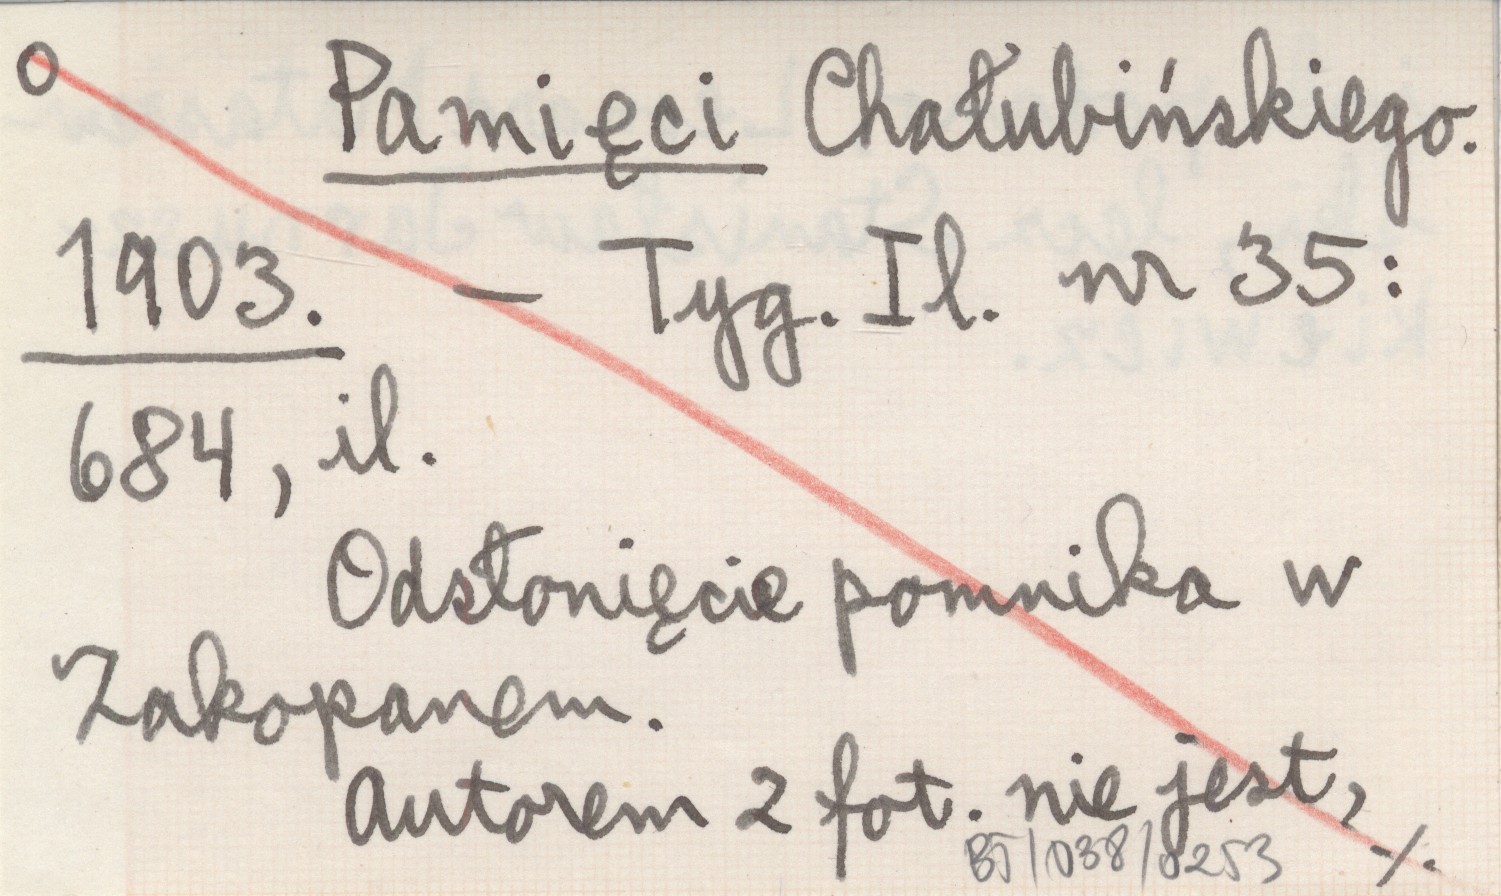 O Pamięci Chałubińskiego.
1903. — Tyg. Il. nr 35:
684, il.
Odsłonięcie pomnika w
Zakopanem.
Autorem 2 fot. nie jest,
BJ/038/0253 -/.